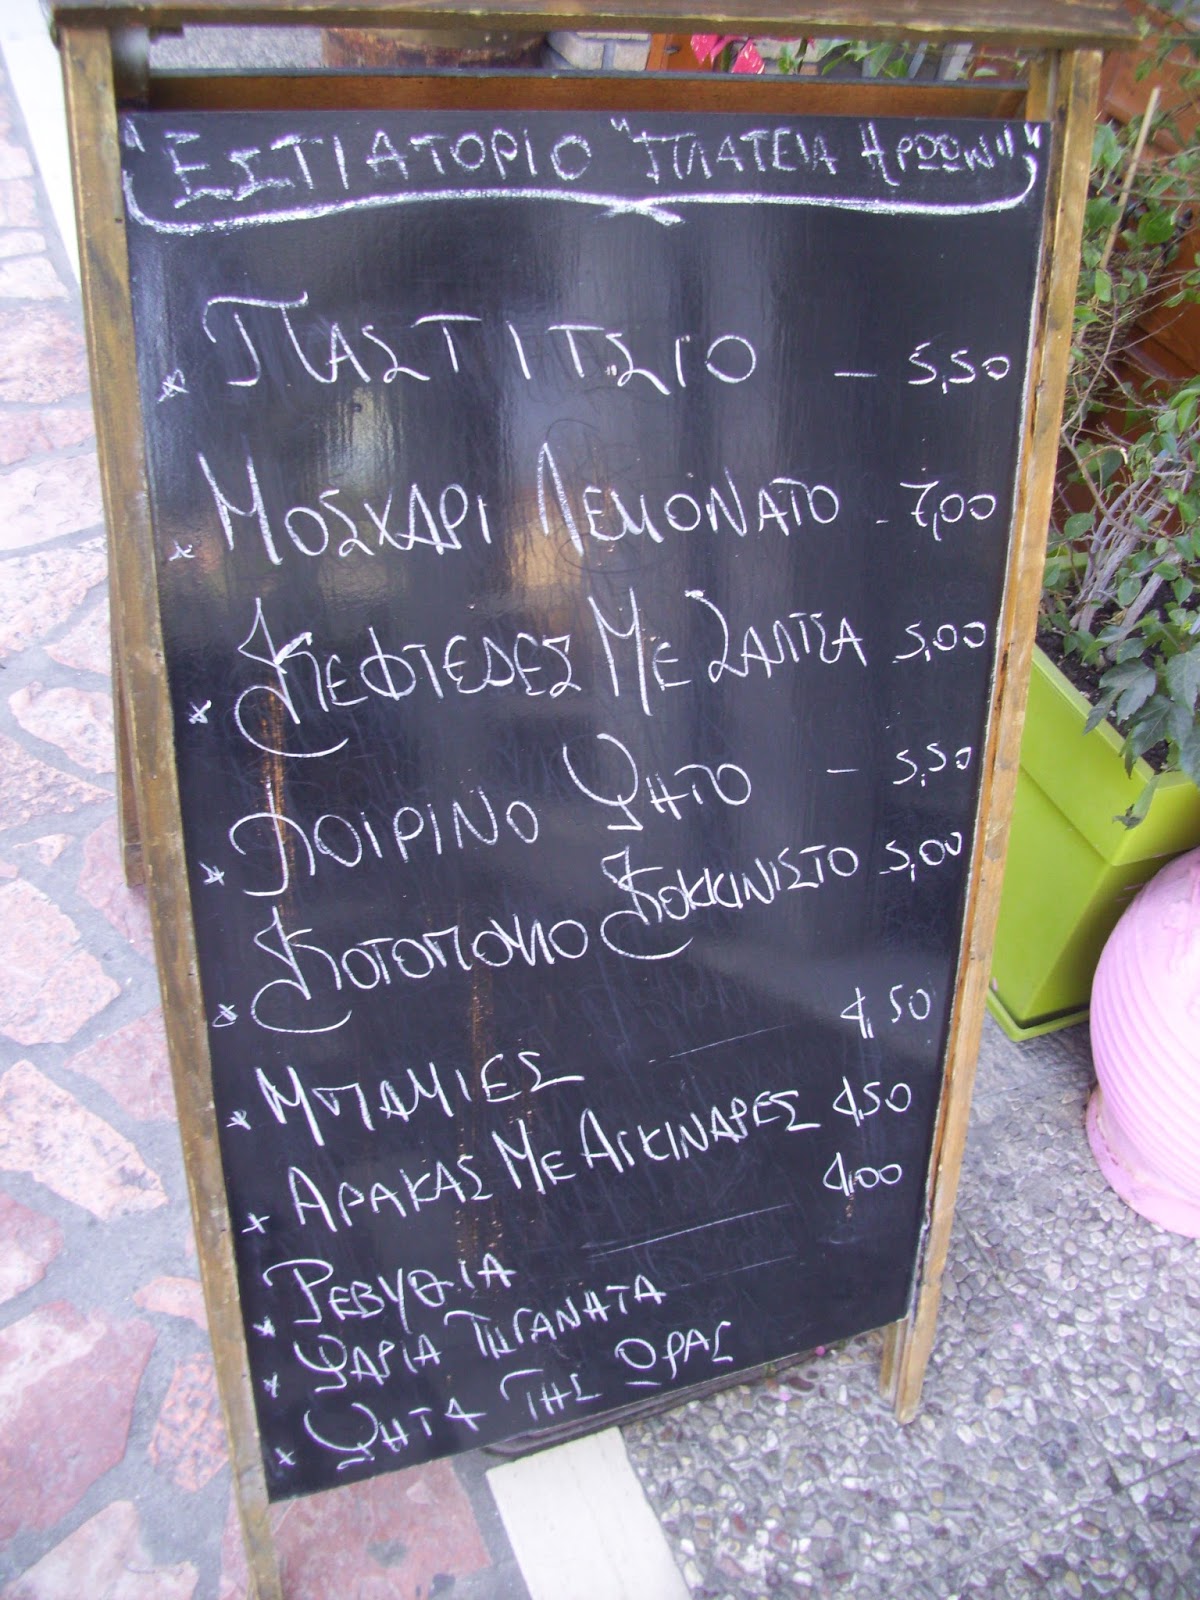 "ΕΣΤΙΑΤΟΡΙΟ "ΠΛΑΤΕΙΑ ΗΡΩΩΝ""
* ΠΑΣΤΙΤΣΙΟ — 5,50
* ΜΟΣΧΑΡΙ ΛΕΜΟΝΑΤΟ - 7,00
* ΚΕΦΤΕΔΕΣ ΜΕ ΣΑΛΤΣΑ 5,00
* ΧΟΙΡΙΝΟ ΨΗΤΟ — 5,50
* ΚΟΤΟΠΟΥΛΟ ΚΟΚΚΙΝΙΣΤΟ 5,00
* ΜΠΑΜΙΕΣ — 4,50
* ΑΡΑΚΑΣ ΜΕ ΑΓΚΙΝΑΡΕΣ 4,50
* ΡΕΒΥΘΙΑ — 4,00
* ΨΑΡΙΑ ΤΗΓΑΝΗΤΑ
* ΨΗΤΑ ΤΗΣ ΩΡΑΣ